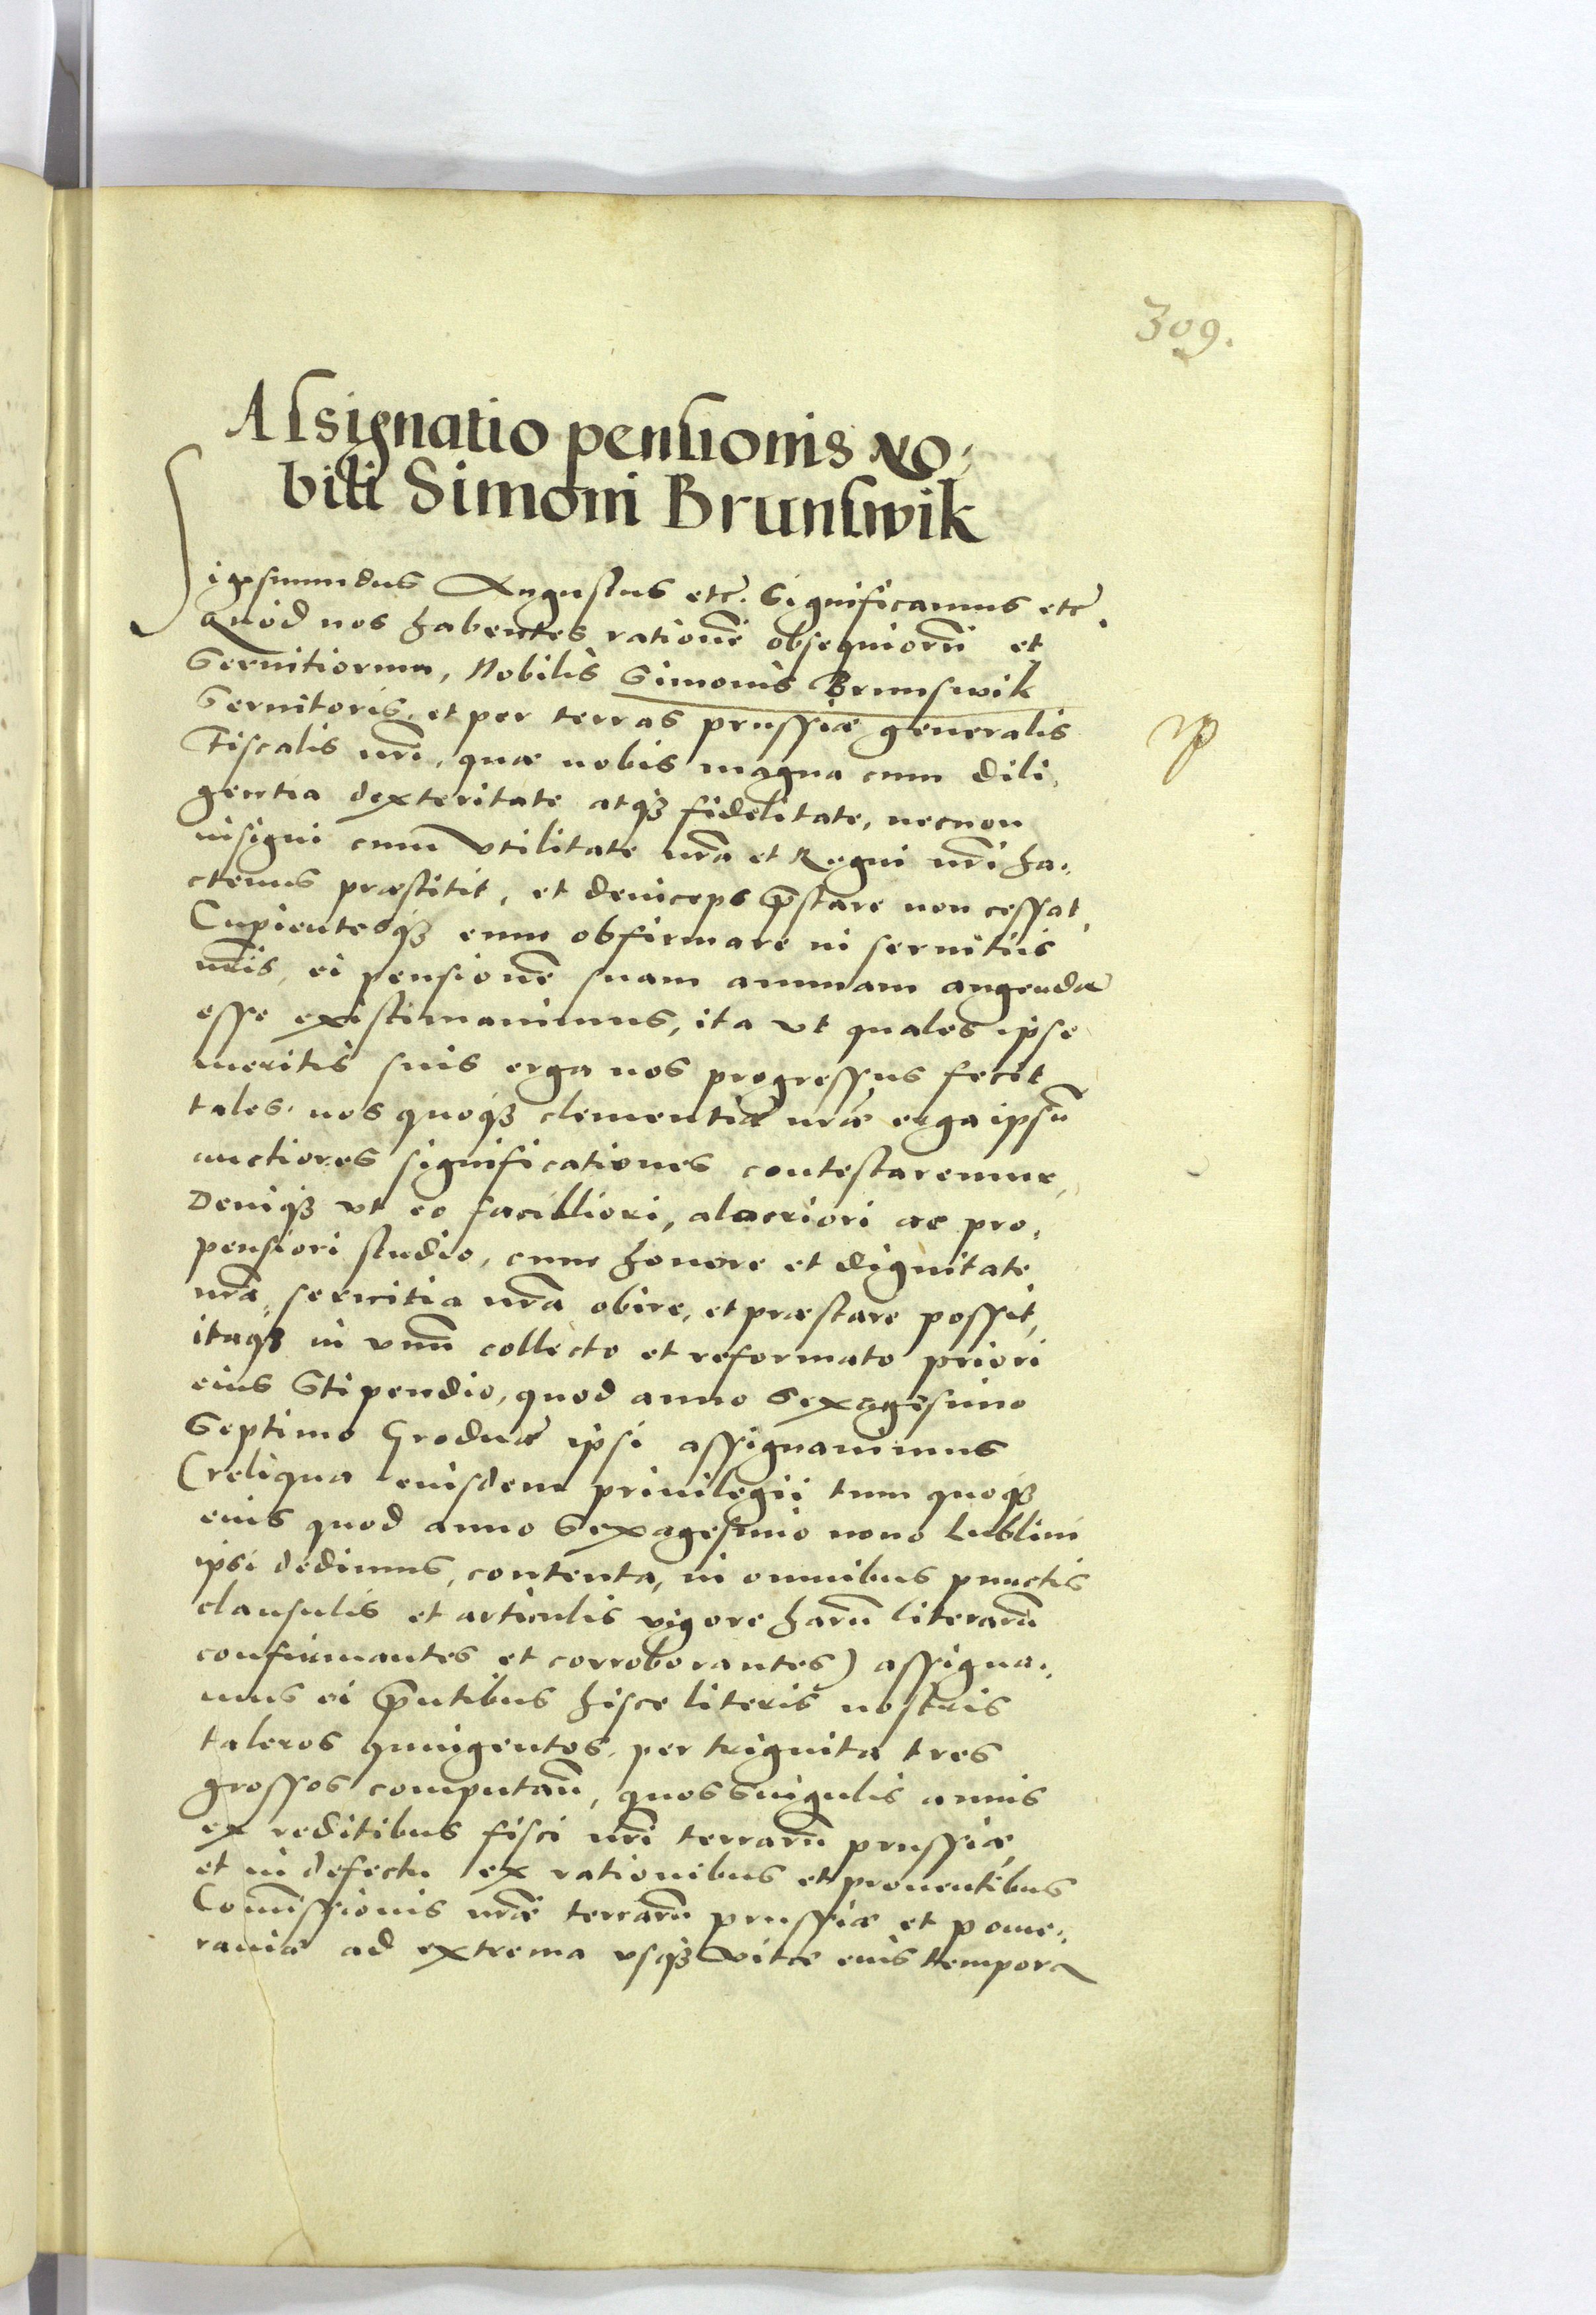 309.
Assignatio pensionis No-
bili Simoni Brunswik
Sigismundus Augustus etc. Significamus etc.
Quod nos habentes rationē obsequiorū et
Seruitiorum, Nobilis Simonis Brunswik
Seruitoris, et per terras prussiæ generalis
Fiscalis nr̄i, quæ nobis magna cum dili-
gentia dexteritate atq3 fidelitate, necnon
insigni cum vtilitate nr̄a et Regni nr̄i ha-
ctenus præstitit, et deinceps p̄stare non cessat,
Cupientesq3 eum obfirmare in seruitiis
nr̄is, ei pensionē suam annuam augendā
esse existimauimus, ita vt quales ipse
meritis suis erga nos progressus fecit
tales, nos quoq3 clementiæ nr̄æ erga ipsū
auctiores significationes contestaremur,
Deniq3 vt eo facilliori, alacriori ac pro-
pensiori studio, cum honore et dignitate
nr̄a, seruitia nr̄a obire, et præstare possit,
itaq3 in vnū collecto et reformato priori
eius Stipendio, quod anno Sexagesimo
Septimo Grodnæ ipsi assignauimus
(reliqua eiusdem priuilegii tum quoq3
eius quod anno Sexagesimo nono Lublini
ipsi dedimus, contenta, in omnibus punctis
clausulis et articulis vigore harū literarū
confirmantes et corroborantes) assigna-
mus ei p̄ntibus hisce literis nostris
taleros quingentos, per triginta tres
grossos computan̄, quos singulis annis
ex reditibus fisci nr̄i terrarū prussiæ,
et in defectu ex rationibus et prouentibus
Com̄issionis nr̄æ terrarū prussiæ et pome-
raniæ ad extrema vsq3 vitæ eius tempora